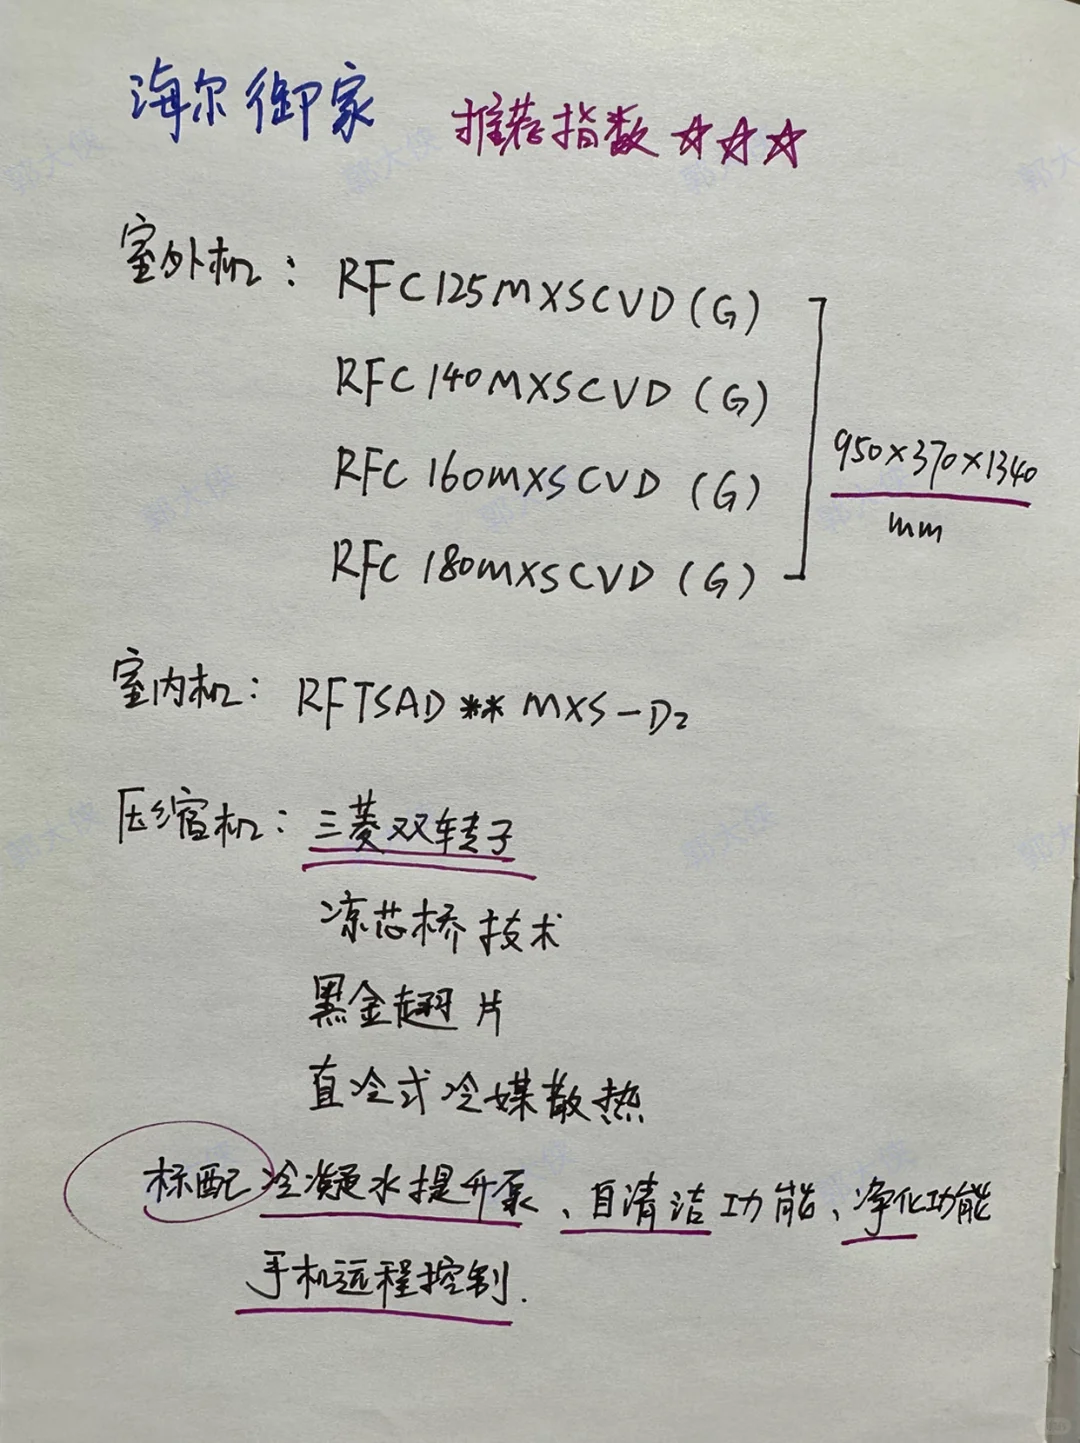 海尔御家 推荐指数 ☆☆☆
室外机：RFC125MXSCVD(G)
RFC140MXSCVD(G)
950×370×1340
RFC160MXSCVD(G)
mm
RFC180MXSCVD(G)
室内机：RFTSAD**MXS-D2
压缩机：三菱双转子
凉芯桥技术
黑金翅片
直冷式冷媒散热
标配冷凝水提升泵、自清洁功能、净化功能
手机远程控制.